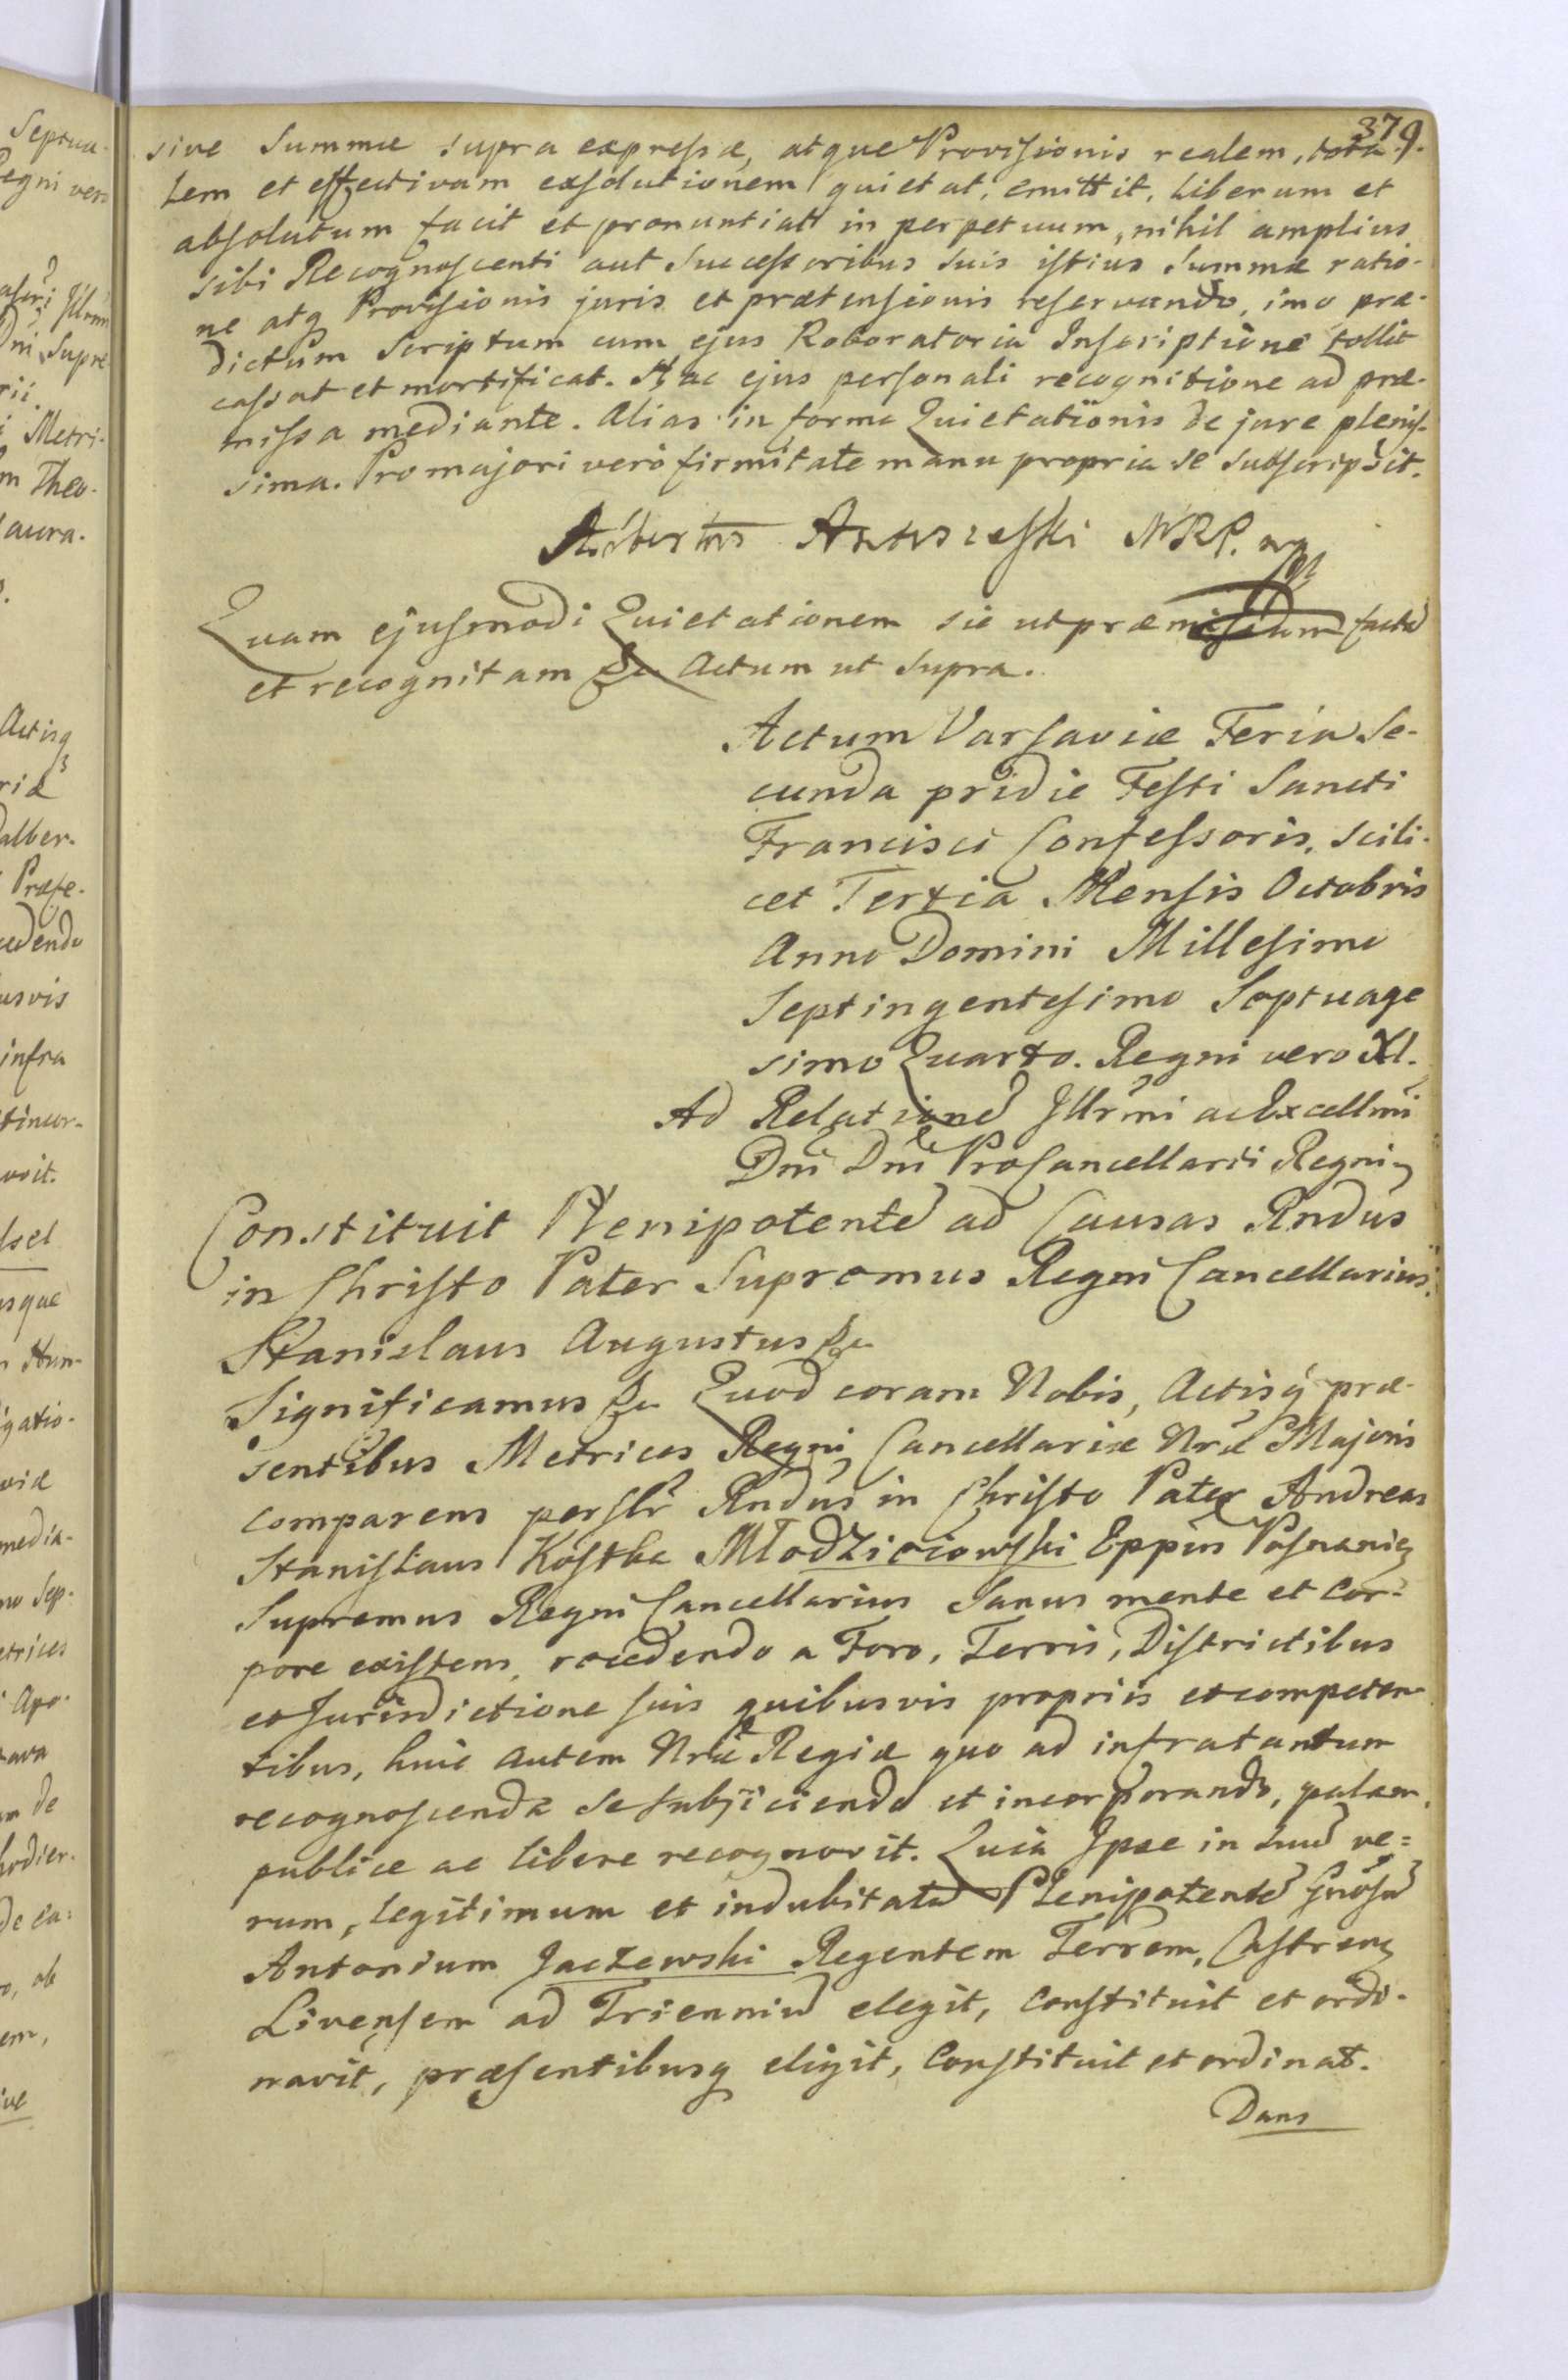 379.
sive Summæ supra expressæ, atque Provisionis realem, tota-
lem et effectivam exsolutionem quietat, emittit, liberum et
absolutum facit et pronuntiatt in perpetuum, nihil amplius
sibi Recognoscenti aut Successoribus suis istius Summæ ratio-
ne atq Provisionis juris et prætensionis reservando, imo præ-
dictum Scriptum cum ejus Roboratoria Inscriptione tollit
cassat et mortificat. Hac ejus personali recognitione ad præ-
missa mediante. Alias in forma Quietationis de jure plenis-
sima. Pro majori vero firmitate manu propria se subscripsit.
Albertus NRP. mp
Quam ejusmodi Quietationem sic ut præmissum factã
et recognitam &c Actum ut supra.
Actum Varsaviæ Feria Se-
cunda pridie Festi Sancti
Francisci Confessoris, scili-
cet Tertia Mensis Octobris
Anno Domini Millesimo
Septingentesimo Septuage
simo Quarto. Regni vero XI.
Ad Relationẽ Jllrmi ac Excellmi
Dni Dni ProCancellarii Regni
Constituit Plenipotentẽ ad Causas Rndus
in Christo Pater Supremus Regni Cancellarius.
Stanislaus Augustus &c
Significamus &c Quod coram Nobis, Actisq præ-
sentibus Metrices Regni Cancellariæ Nræ Majoris
comparens persltr Rndus in Christo Pater Andreas
Stanislaus Kostka Młodzieiowski Eppus Posnanien
Supremus Regni Cancellarius Sanus mente et Cor-
pore existens, recedendo a Foro, Terris, Districtibus
et Jurisdictione suis quibusvis propriis et competen
tibus, huic autem Nræ Regiæ quo ad infra tantum
recognoscenda se subjiciendo et incorporando, palam
publice ac libere recognovit. Quia Ipse in suũ ve=
rum, legitimum et indubitatũ Plenipotentẽ Gnosũ
Antonium Jaczewski Regentem Terrem, Castren
Livensem ad Trienniũ elegit, constituit et ordi-
navit, præsentibusq eligit, Constituit et ordinat.
Dans